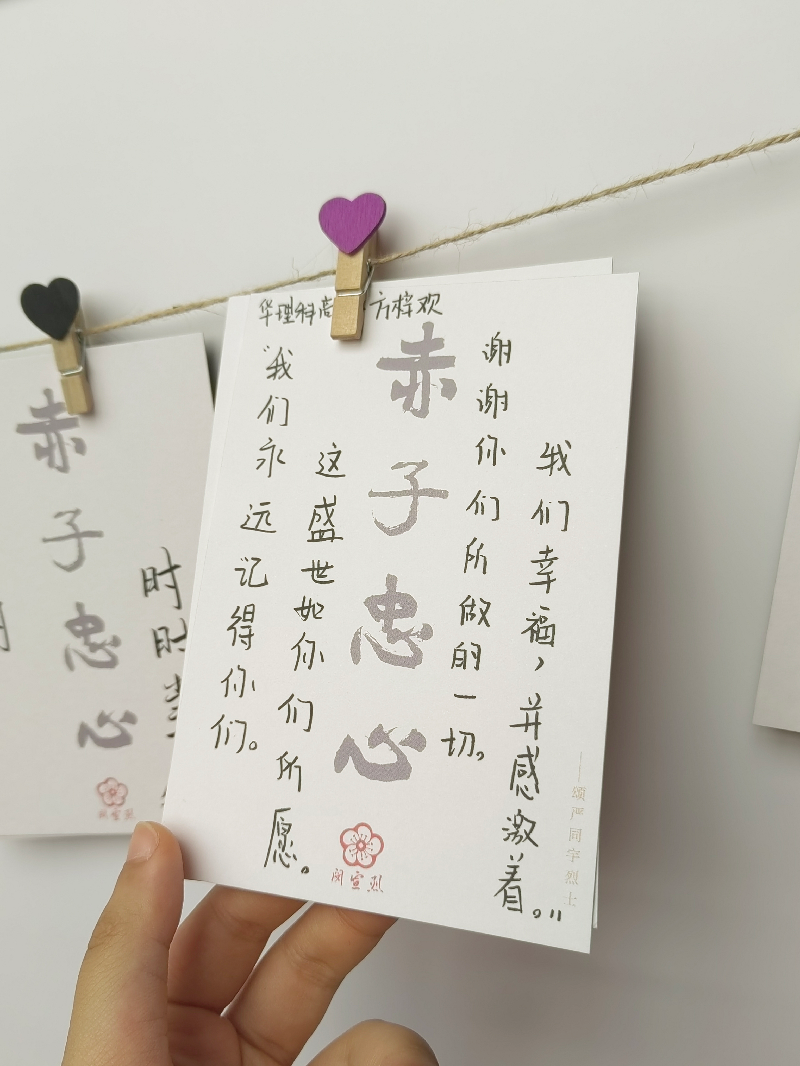 华理科高 方梓欢
“我们永远记得你们。
这盛世如你们所愿。
赤子忠心
谢谢你们所做的一切。
我们幸福，并感激着。”
——颂严同宇烈士
闵宣烈
赤子忠心
时时
闵宣烈